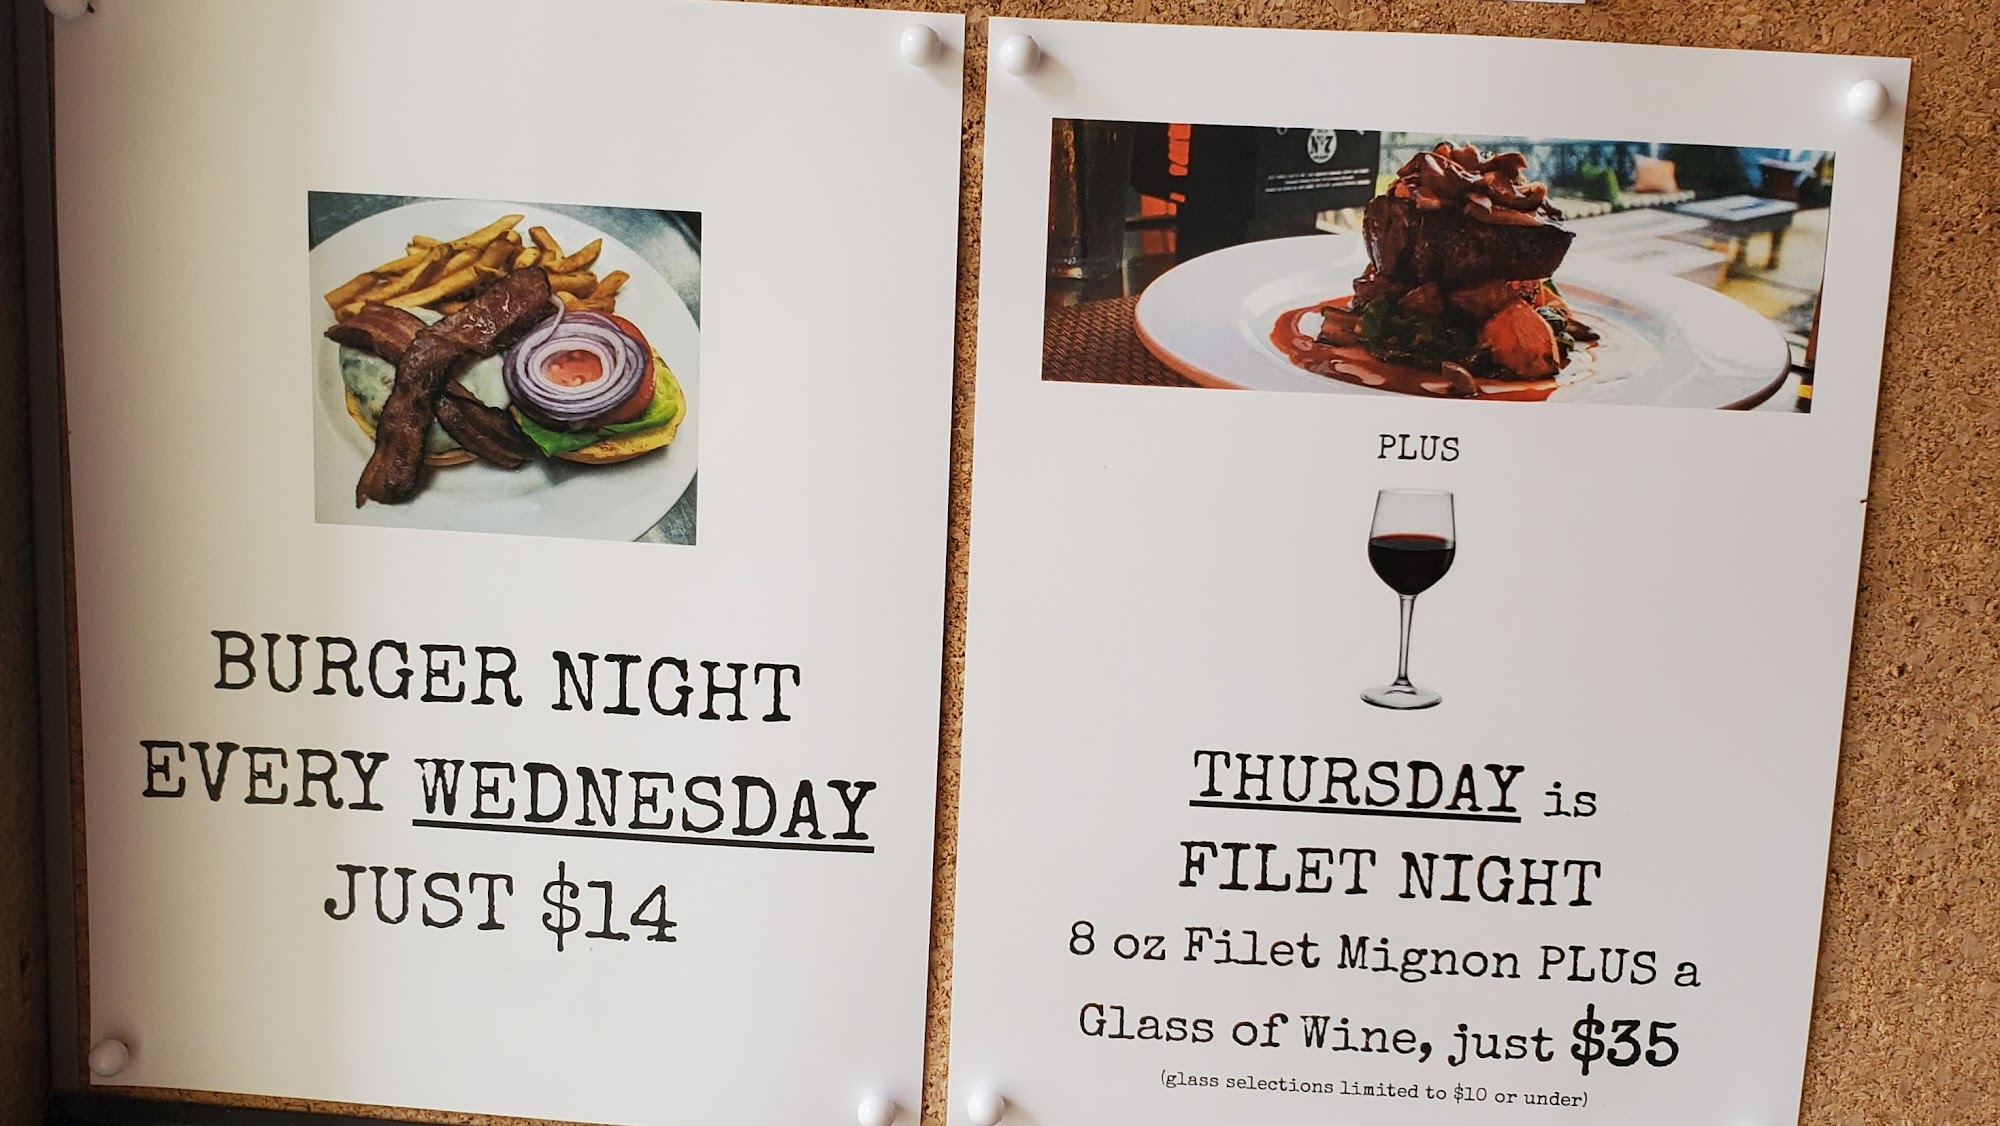 BURGER NIGHT
EVERY WEDNESDAY
JUST $14
Nº7
PLUS
THURSDAY is
FILET NIGHT
8 oz Filet Mignon PLUS a
Glass of Wine, just $35
(glass selections limited to $10 or under)